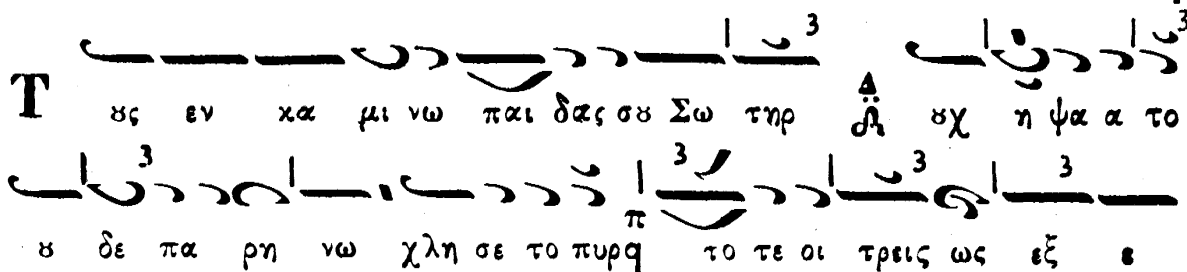 Τ ȣς εν κα μι νω παι δας σȣ Σω τηρ ȣχ η ψα α το
ȣ δε πα ρη νω χλη σε το πυρ το τε οι τρεις ως εξ ε